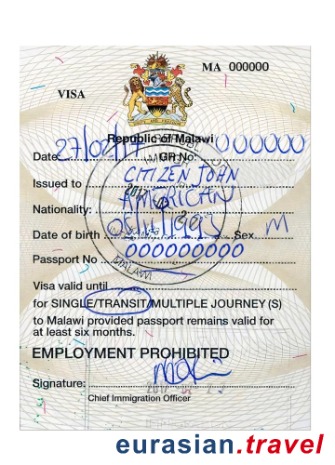 MA 000000
VISA
Republic of Malawi
Date 27/02/ GR No: 000000
Issued to CITIZEN JOHN
Nationality: AMERICAN
Date of birth Sex M
Passport No 000000000
Visa valid until
for SINGLE/TRANSIT/MULTIPLE JOURNEY (S)
to Malawi provided passport remains valid for
at least six months.
EMPLOYMENT PROHIBITED
Signature:
Chief Immigration Officer
MALAWI
eurasian.travel